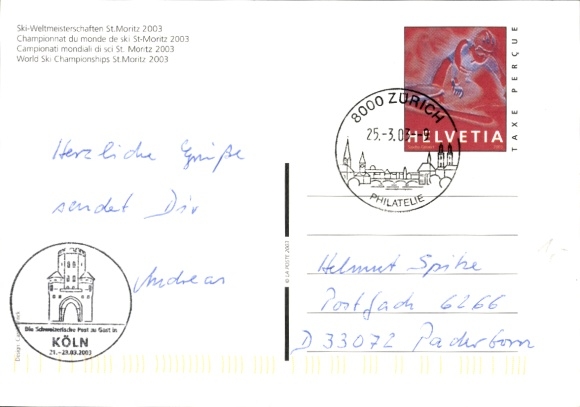 Ski-Weltmeisterschaften St.Moritz 2003
Championnat du monde de ski St-Moritz 2003
Campionati mondiali di sci St. Moritz 2003
World Ski Championships St.Moritz 2003
TAXE PERÇUE
HELVETIA
8000 ZÜRICH
25.-3.03-9
PHILATELIE
Herzliche Grüße
sendet Dir
Andreas
© LA POSTE 2003
Helmut Spitze
Postfach 6266
D 33072 Paderborn
Die Schweizerische Post zu Gast in
KÖLN
21.-23.03.2003
Design: